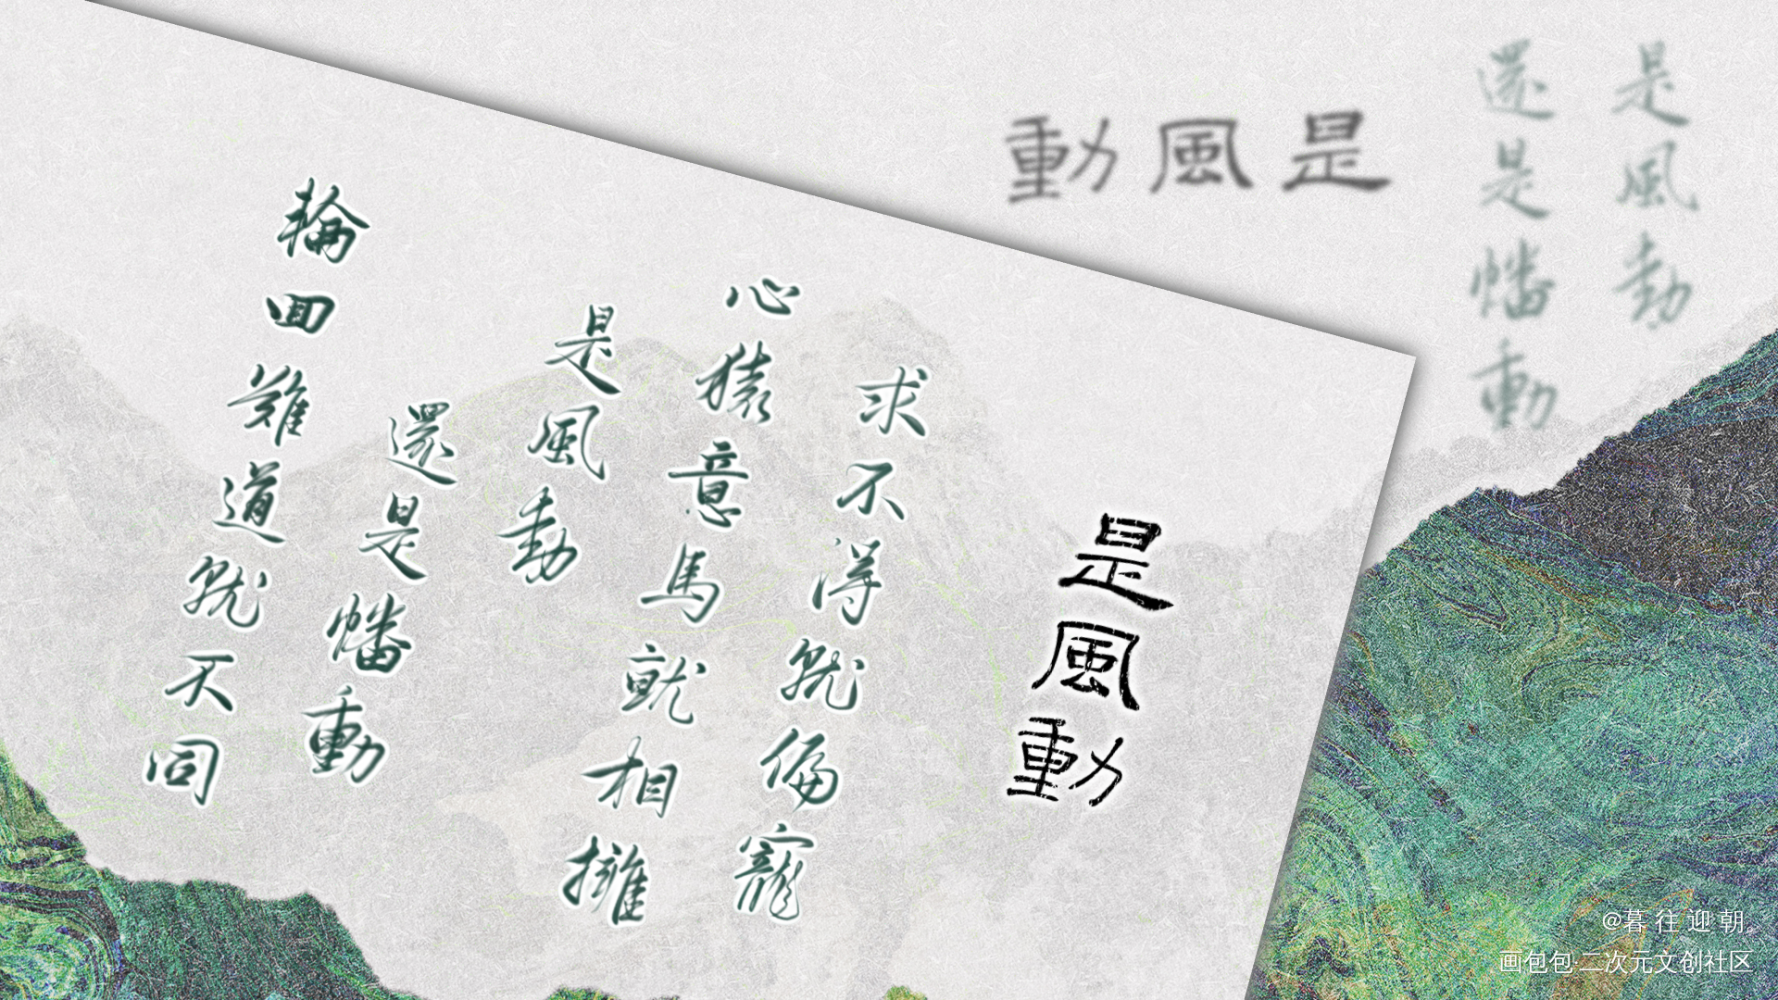 是風動
還是幡動
是風動
是風動
求不得就偏寵
心猿意馬就相擁
是風動
還是幡動
輪回難道就不同
@暮往迎朝
画包包·二次元文创社区